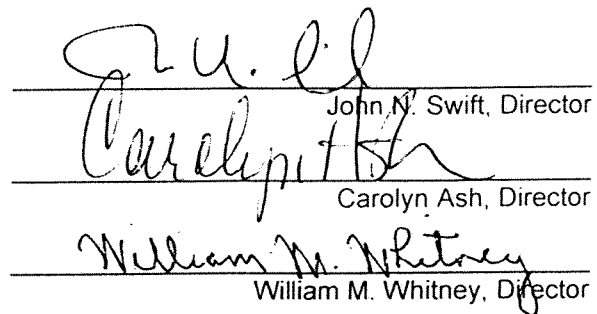 John N. Swift, Director
Carolyn Ash
Carolyn Ash, Director
William M. Whitney
William M. Whitney, Director